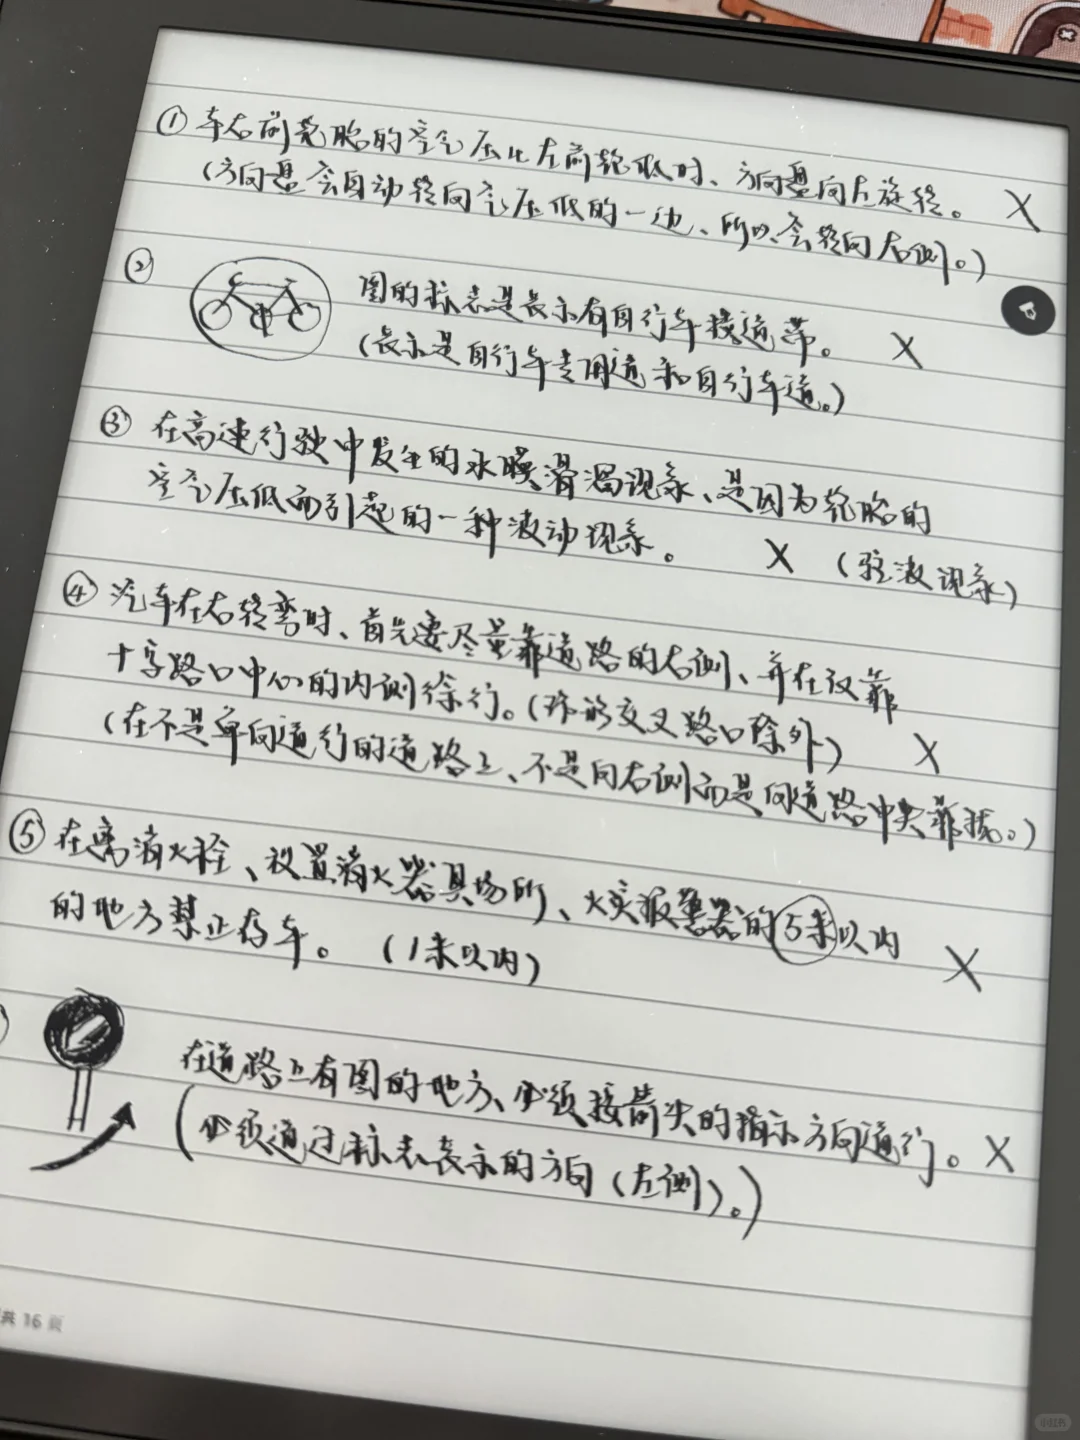 ① 车右前轮胎的空气压比左前轮低时、方向盘向左旋转。 X
(方向盘会自动转向气压低的一边、所以会转向右侧。)
② 图的标志是表示有自行车横道带。 X
(表示是自行车专用道和自行车道。)
③ 在高速行驶中发生的水膜滑溜现象、是因为轮胎的
空气压低而引起的一种波动现象。 X (驻波现象)
④ 汽车在右转弯时、首先要尽量靠道路的右侧、并在仅靠
十字路口中心的内侧徐行。(环形交叉路口除外) X
(在不是单向通行的道路上、不是向右侧而是向道路中央靠拢。)
⑤ 在离消火栓、设置消火器具场所、火灾报警器的5米以内
的地方禁止存车。 (1米以内) X
在道路上有图的地方、必须按箭头的指示方向通行。 X
(必须通过标志表示的方向(左侧)。)
共 16 页
小红书